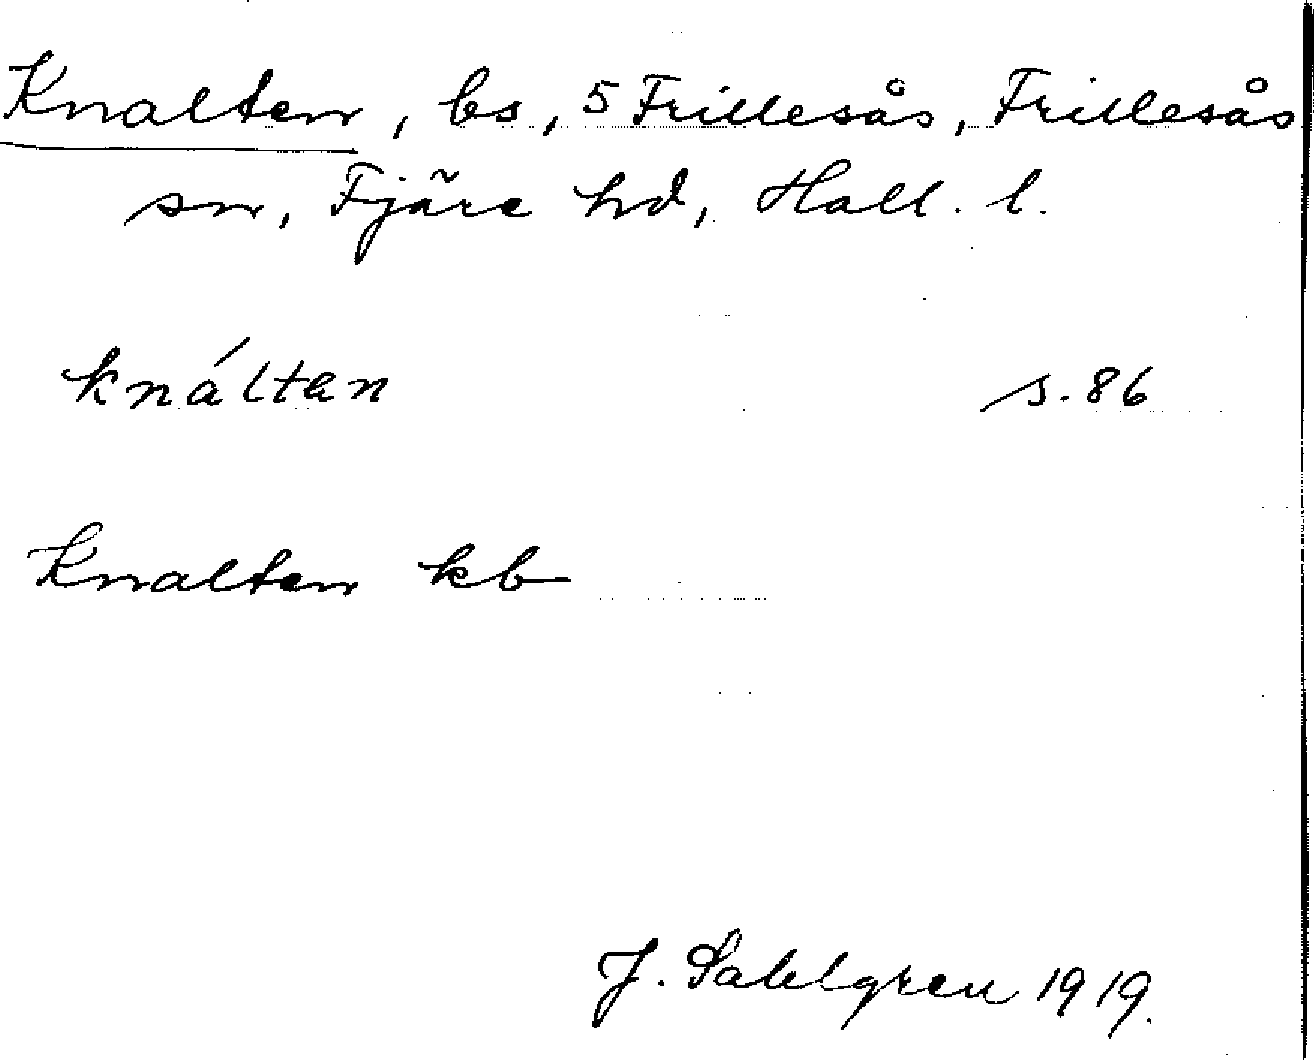 Knalten, bs, 5 Frillesås, Frillesås
sn, Fjäre hd, Hall. l.
knáltan s. 86
Knalten kb
J. Sahlgren 1919.